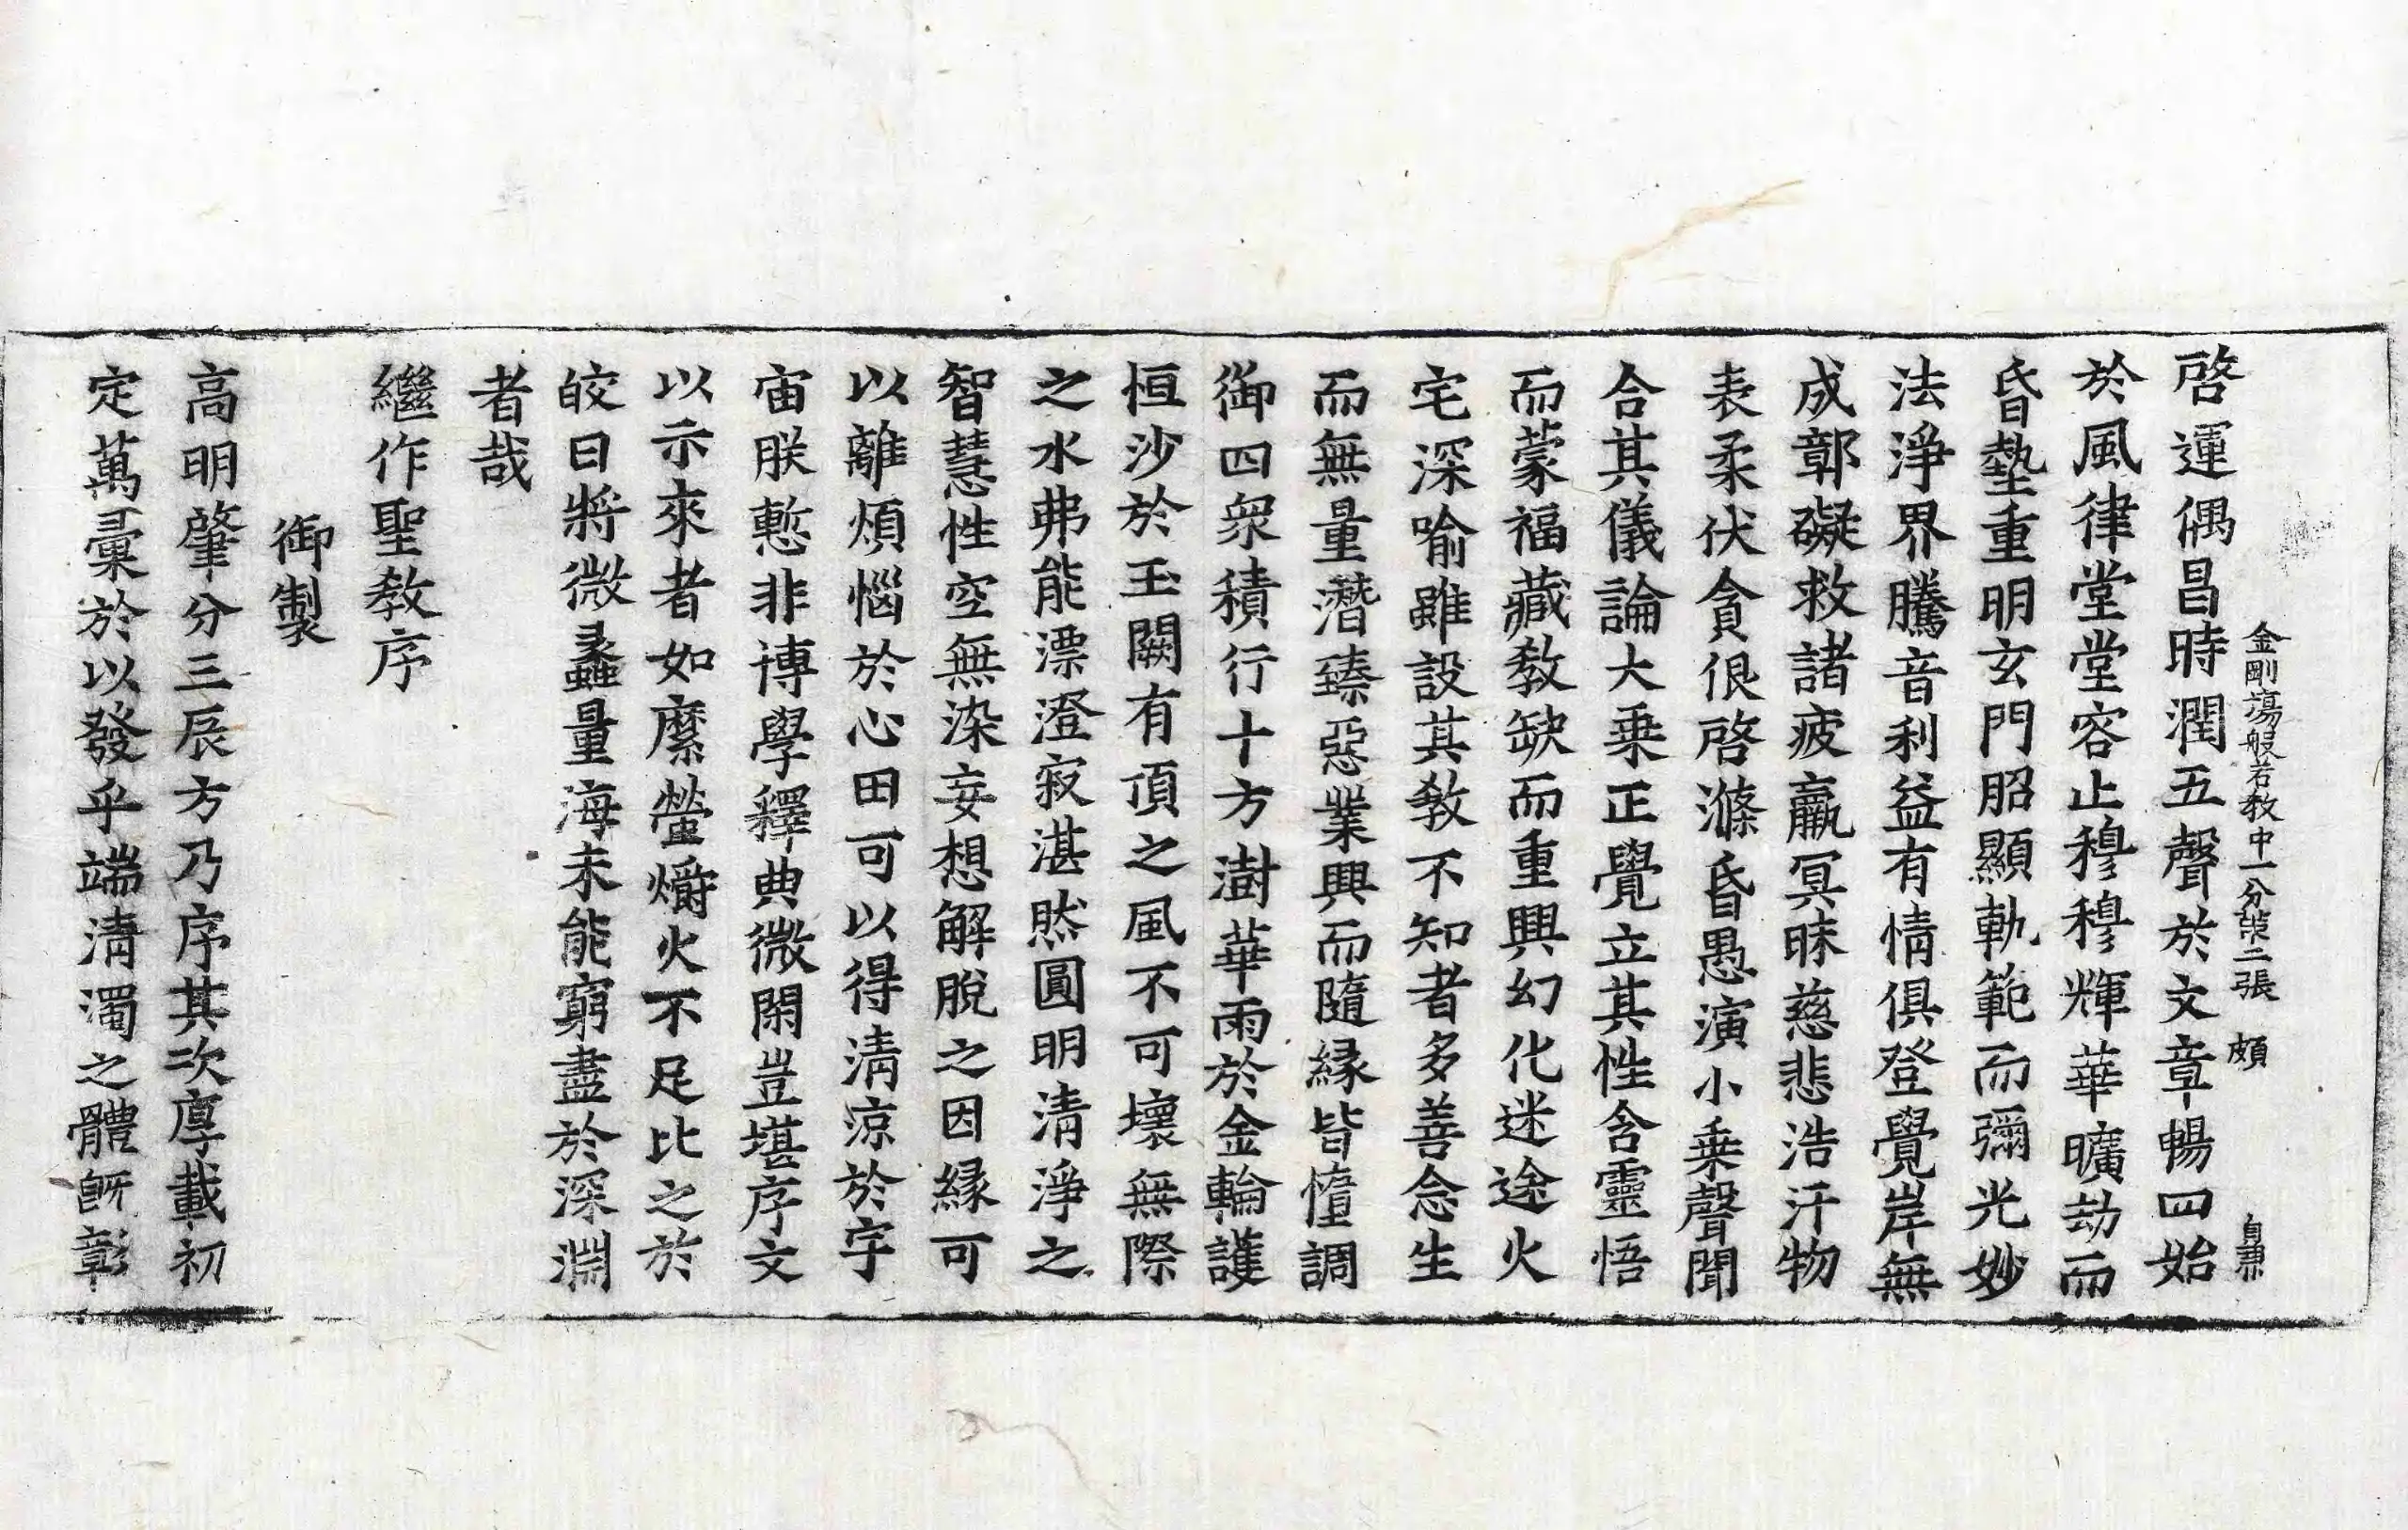 金剛場般若教中一分第二張 頗 自肅
啓運偶昌時潤五聲於文章暢四始
於風律堂堂容止穆穆輝華曠劫而
昏墊重明玄門昭顯軌範而彌光妙
法淨界騰音利益有情俱登覺岸無
成鄣礙救諸疲羸冥昧慈悲浩汗物
表柔伏貪佷啓滌昏愚演小乘聲聞
合其儀論大乘正覺立其性含靈悟
而蒙福藏教缺而重興幻化迷途火
宅深喻雖設其教不知者多善念生
而無量潛臻惡業興而隨緣皆憧調
御四衆積行十方澍華雨於金輪護
恒沙於玉闕有頂之風不可壞無際
之水弗能漂澄寂湛然圓明清淨之
智慧性空無染妄想解脫之因緣可
以離煩惱於心田可以得淸涼於宇
宙朕慙非博學釋典微閑豈堪序文
以示來者如縻螢爝火不足比之於
皎日將微蠡量海未能窮盡於深淵
者哉
繼作聖教序
御製
高明肇分三辰方乃序其次厚載初
定萬彙於以發乎端淸濁之體旣彰